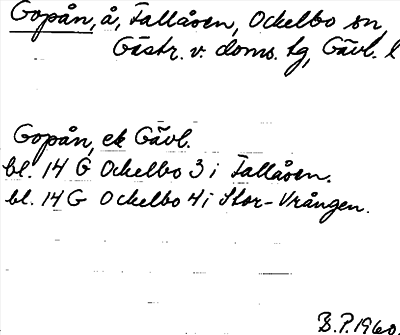 Gopån, å, Tallåsen, Ockelbo sn,
Gästr. v. doms. tg, Gävl. l
Gopån, ek Gävl.
bl. 14 G Ockelbo 3 i Tallåsen.
bl. 14 G Ockelbo 4 i Stor-Vrången.
B.P. 1960.